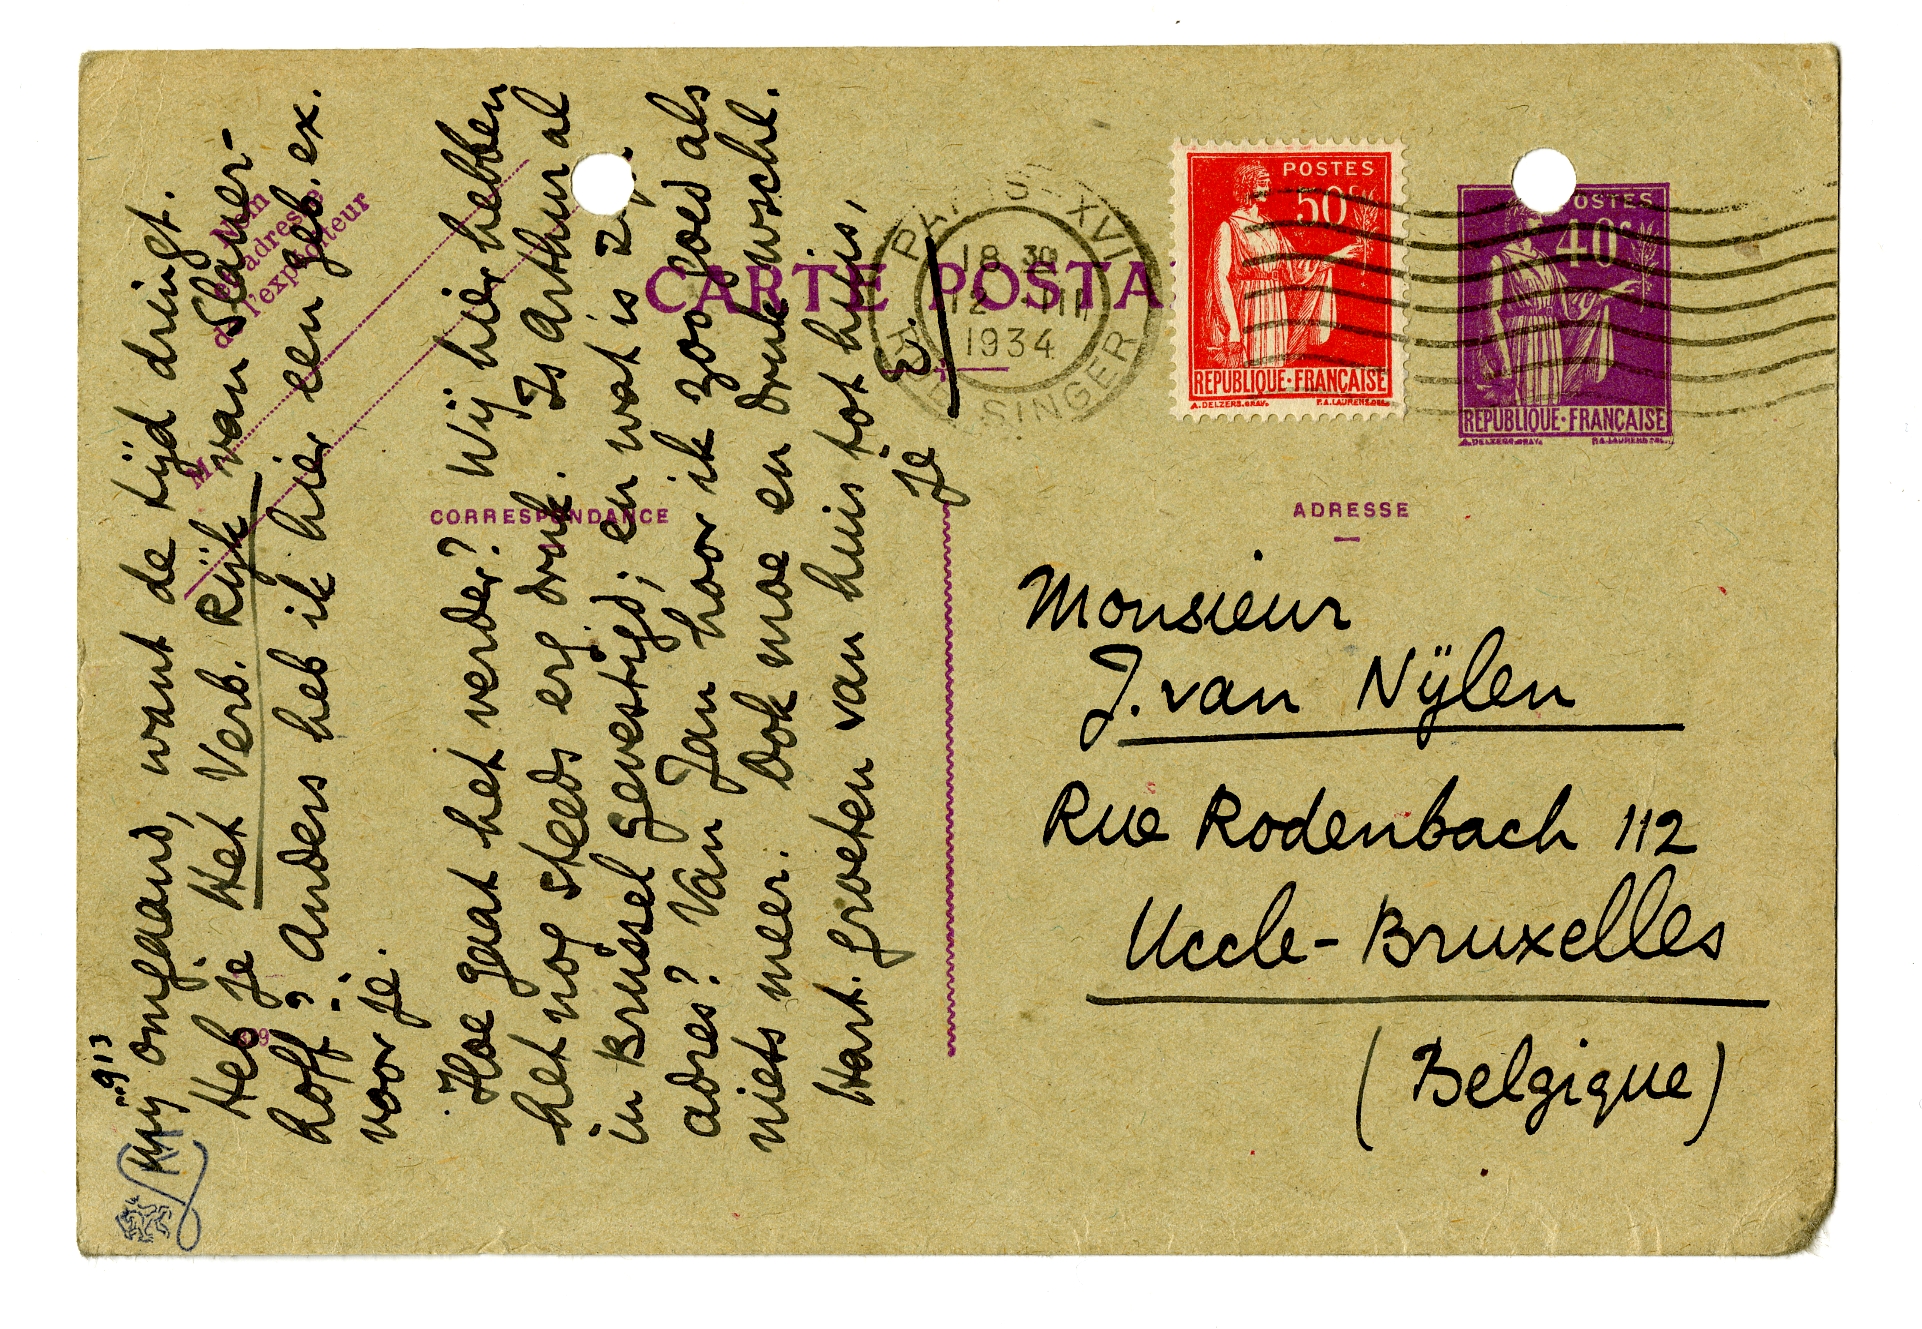 mij omgaand, want de tijd dringt.
Heb je Het Verb. Rijk van Slauer-
hoff? Anders heb ik hier een geb. ex.
voor je.
Hoe gaat het verder? Wij hier hebben
het nog steeds erg druk. Is Arthur al
in Brussel gevestigd; en wat is zijn
adres? Van Jan hoor ik zoo goed als
niets meer. Ook moe en druk wschl.
Hart. groeten van huis tot huis,
je
E.
913
Nom
et adresse
de l'expéditeur
M
CARTE POSTA
CORRESPONDANCE
PARIS XVI
18 30
12 III
1934
SINGER
POSTES
50c
REPUBLIQUE·FRANÇAISE
A.DELZERS.GRAV. P.A.LAURENS.DEL.
POSTES
40c
REPUBLIQUE·FRANÇAISE
A.DELZERS.GRAV. P.A.LAURENS.DEL.
ADRESSE
Monsieur
J. van Nijlen
Rue Rodenbach 112
Uccle-Bruxelles
(Belgique)